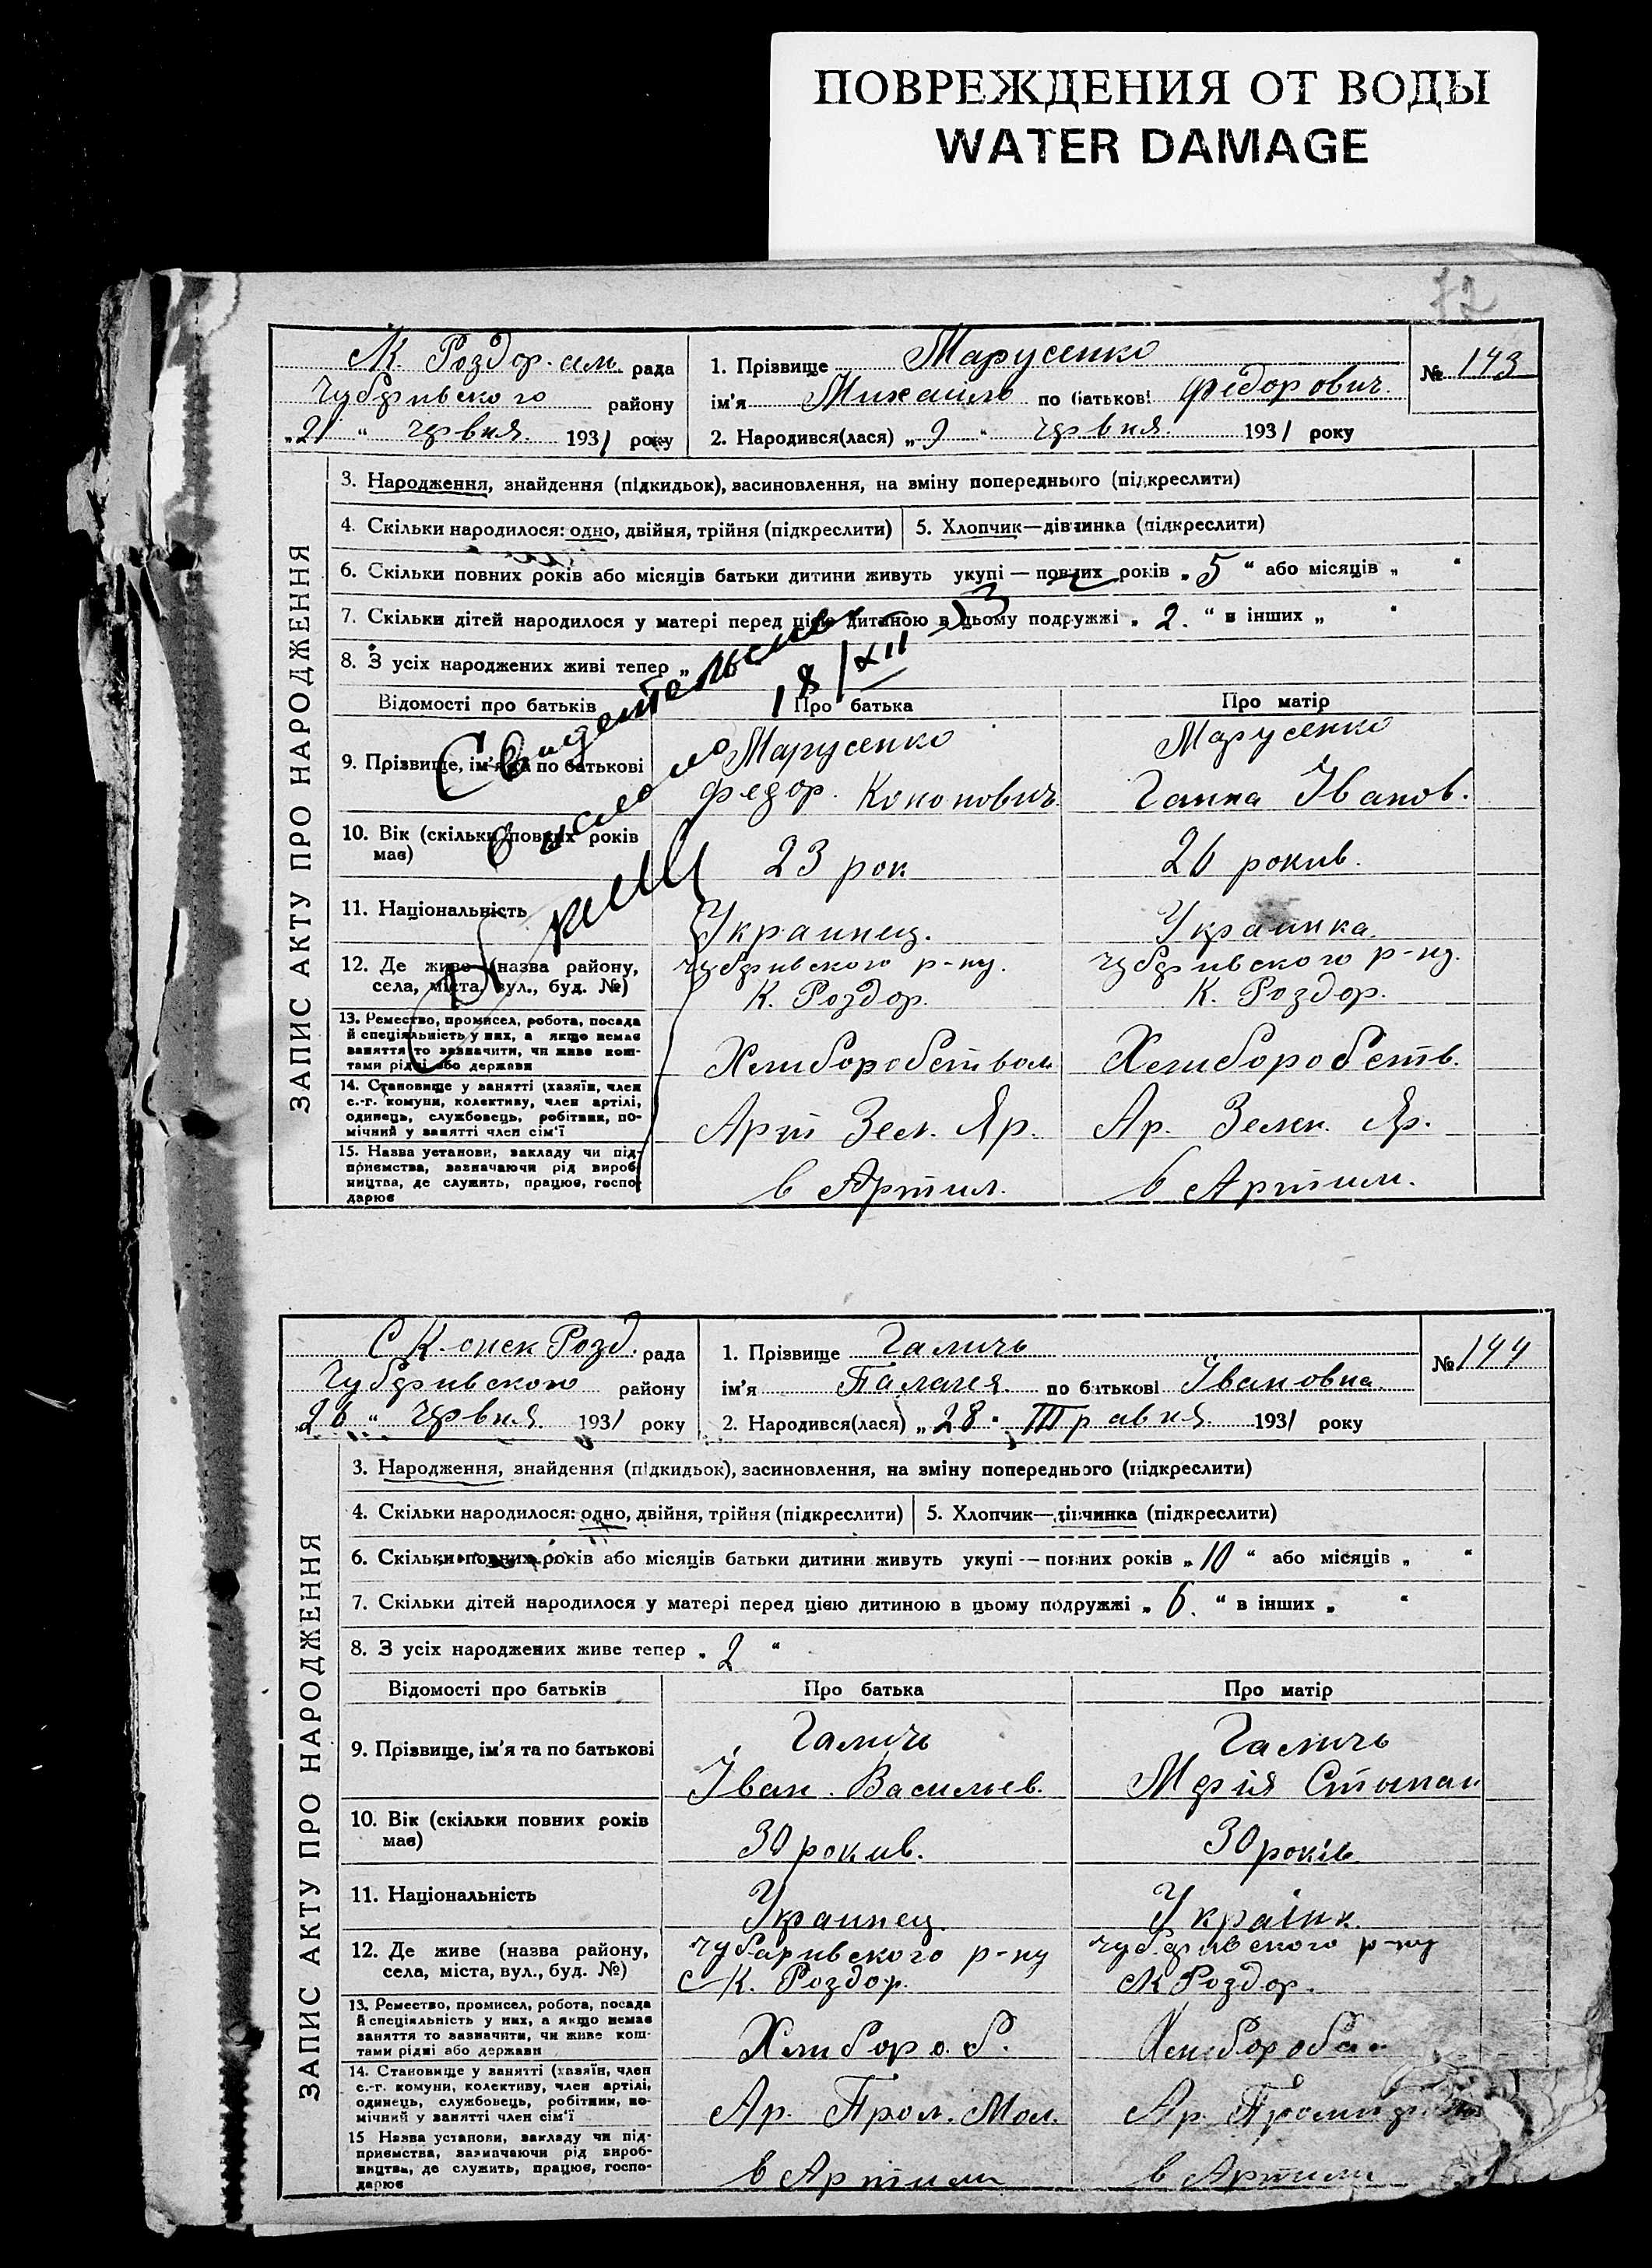 ПОВРЕЖДЕНИЯ ОТ ВОДЫ
WATER DAMAGE
72
К. Роздор. рада
Чубаривського району
„21“ червня 1931 року
1. Прізвище Марусенко
ім'я Михаіль по батькові Федорович
2. Народився(лася) „9“ червня 1931 року
№ 143
ЗАПИС АКТУ ПРО НАРОДЖЕННЯ
3. Народження, знайдення (підкидьок), засиновлення, на зміну попереднього (підкреслити)
4. Скільки народилося: одно, двійня, трійня (підкреслити)
5. Хлопчик—дівчинка (підкреслити)
6. Скільки повних років або місяців батьки дитини живуть укупі — повних років „5“ або місяців „ “
7. Скільки дітей народилося у матері перед цією дитиною в цьому подружжі „2.“ в інших „ “
8. З усіх народжених живі тепер „
18/XII
Відомості про батьків
Про батька
Про матір
9. Прізвище, ім'я та по батькові
Марусенко
Федор. Кононович
Марусенко
Ганна Іванов.
10. Вік (скільки повних років
має)
23 рок
26 рокив.
11. Національність
Украинец.
Украинка.
12. Де живе (назва району,
села, міста, вул., буд. №)
Чубаривского р-ну.
К. Роздор.
Чубаривского р-ну.
К. Роздор.
13. Ремество, промисел, робота, посада
й спеціяльність у них, а якщо немає
заняття то зазначити, чи живе кош-
тами рідні або держави
Хлиборобством
Хлиборобств.
14. Становище у занятті (хазяїн, член
с.-г. комуни, колективу, член артілі,
одинець, службовець, робітник, по-
мічний у занятті член сім'ї
Арт Зел. Яр.
Ар. Зелен. Яр.
15. Назва установи, закладу чи під-
приємства, зазначаючи рід вироб-
ництва, де служить, працює, госпо-
дарює
в Артил.
в Артили.
Розд. рада
Чубаривского району
„26“ червня 1931 року
1. Прізвище Галичь
ім'я Палагея по батькові Івановна
2. Народився(лася) „28“ Травня 1931 року
№ 144
ЗАПИС АКТУ ПРО НАРОДЖЕННЯ
3. Народження, знайдення (підкидьок), засиновлення, на зміну попереднього (підкреслити)
4. Скільки народилося: одно, двійня, трійня (підкреслити)
5. Хлопчик—дівчинка (підкреслити)
6. Скільки повних років або місяців батьки дитини живуть укупі — повних років „10“ або місяців „ “
7. Скільки дітей народилося у матері перед цією дитиною в цьому подружжі „6.“ в інших „ “
8. З усіх народжених живе тепер „2“
Відомості про батьків
Про батька
Про матір
9. Прізвище, ім'я та по батькові
Галичь
Іван. Васильев.
Галичь
Мария Степан
10. Вік (скільки повних років
має)
30 рокив.
30 років
11. Національність
Украинец.
Українк.
12. Де живе (назва району,
села, міста, вул., буд. №)
Чубаривского р-ну
с К. Роздор.
Чубаривского р-ну
с К Роздор.
13. Ремество, промисел, робота, посада
й спеціяльність у них, а якщо немає
заняття то зазначити, чи живе кош-
тами рідні або держави
Хлибороб.
14. Становище у занятті (хазяїн, член
с.-г. комуни, колективу, член артілі,
одинець, службовець, робітник, по-
мічний у занятті член сім'ї
Ар. Прол. Мол.
Ар.
15 Назва установи, закладу чи під-
приємства, зазначаючи рід вироб-
ництва, де служить, працює, госпо-
дарює
в Артили
в Артили